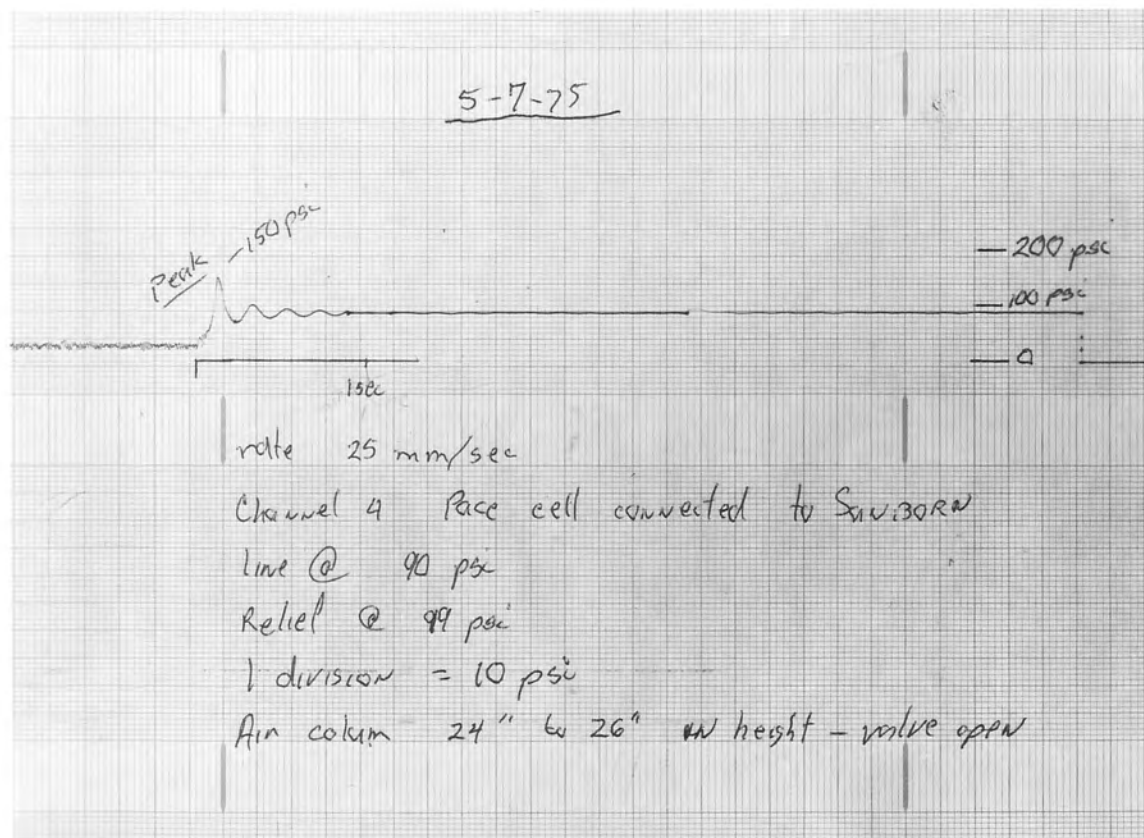 5-7-75
Peak - 150 psi
200 psi
100 psi
0
1 sec
rate 25 mm/sec
Channel 4 Pace cell connected to SANBORN
line @ 90 psi
Relief @ 99 psi
1 division = 10 psi
Air colum 24" to 26" in height - valve open